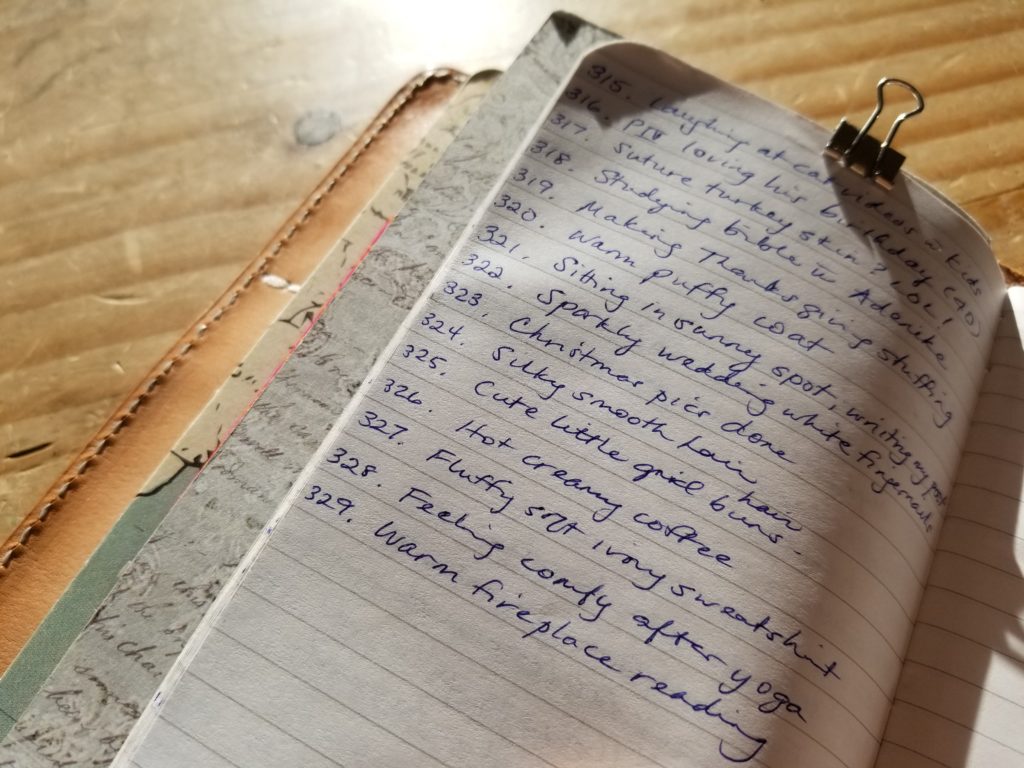 315. Laughing at cat videos w kids
316. loving his birthday (40)
317. Suture turkey skin? lol!
318. Studying bible w Adenike
319. Making Thanksgiving stuffing
320. Warm puffy coat
321. Sitting in sunny spot, writing my
322. Sparkly wedding white fingernails
323. Christmas pics done
324. Silky smooth hair
325. Cute little girl buns. hair
326. Hot creamy coffee
327. Fluffy soft ivory sweatshirt
328. Feeling comfy after yoga
329. Warm fireplace reading